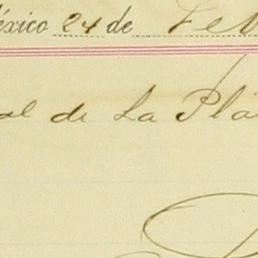 éxico 24 de Feb
al de La Pla